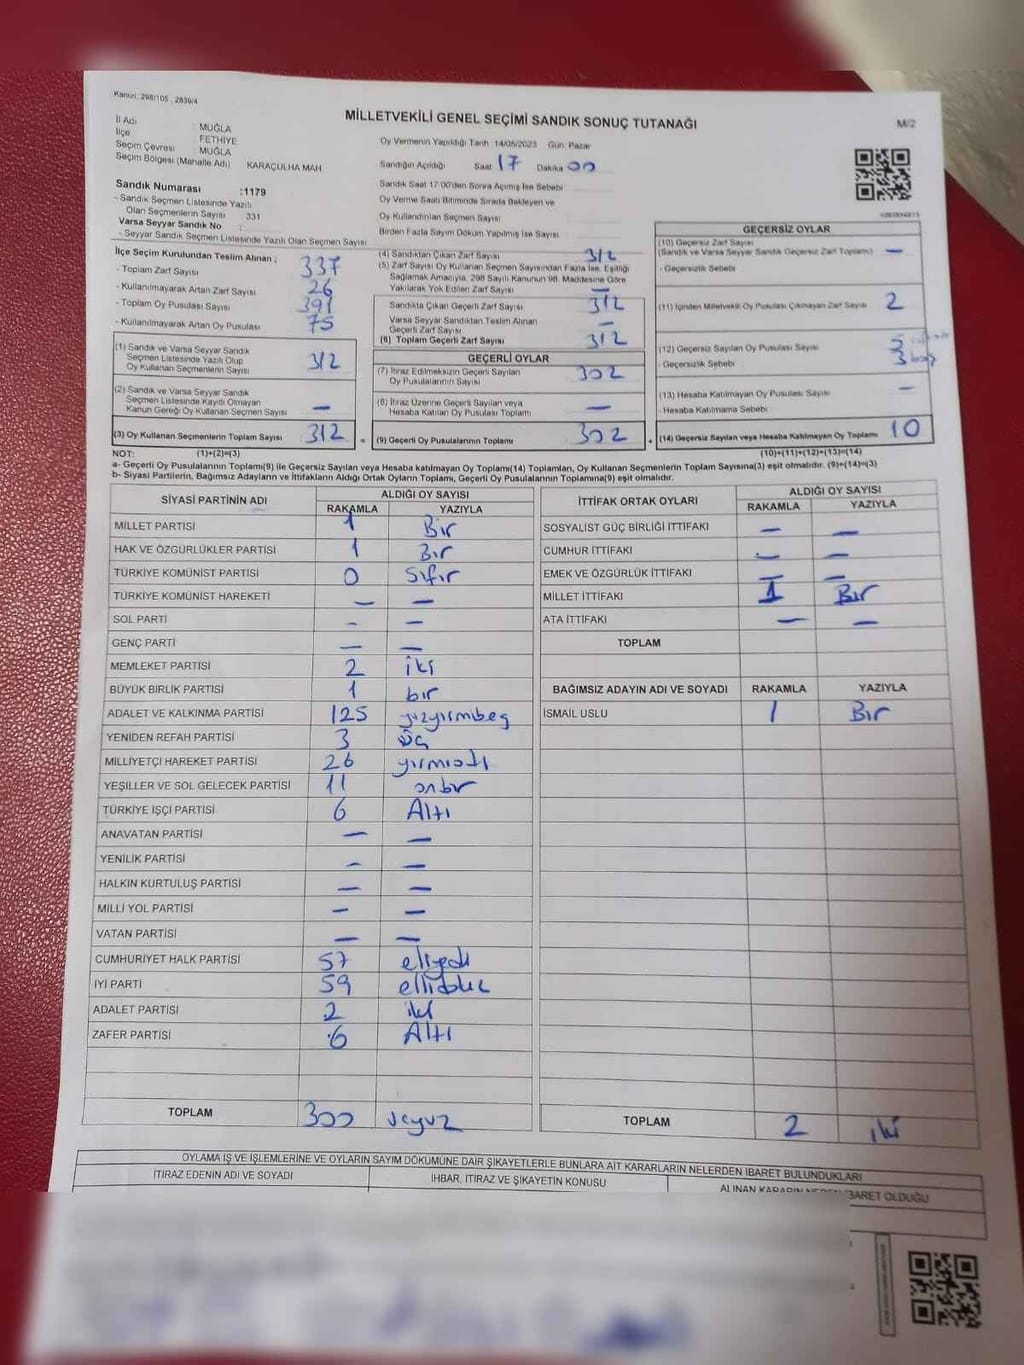 Kanun: 298/105 , 2839/4
MİLLETVEKİLİ GENEL SEÇİMİ SANDIK SONUÇ TUTANAĞI
M/2
İl Adı MUĞLA
İlçe FETHİYE
Seçim Çevresi MUĞLA
Seçim Bölgesi (Mahalle Adı) KARAÇULHA MAH
Oy Vermenin Yapıldığı Tarih 14/05/2023 Gün: Pazar
Sandığın Açıldığı Saat 17 Dakika 00
Sandık Saat 17:00'den Sonra Açılmış İse Sebebi
Oy Verme Saati Bitiminde Sırada Bekleyen ve
Oy Kullandırılan Seçmen Sayısı
Birden Fazla Sayım Döküm Yapılmış İse Sayısı
Sandık Numarası :1179
- Sandık Seçmen Listesinde Yazılı
Olan Seçmenlerin Sayısı 331
Varsa Seyyar Sandık No :
- Seyyar Sandık Seçmen Listesinde Yazılı Olan Seçmen Sayısı
İlçe Seçim Kurulundan Teslim Alınan ;
- Toplam Zarf Sayısı 337
- Kullanılmayarak Artan Zarf Sayısı 26
- Toplam Oy Pusulası Sayısı 391
- Kullanılmayarak Artan Oy Pusulası 75
(1) Sandık ve Varsa Seyyar Sandık
Seçmen Listesinde Yazılı Olup
Oy Kullanan Seçmenlerin Sayısı 312
(2) Sandık ve Varsa Seyyar Sandık
Seçmen Listesinde Kayıtlı Olmayan
Kanun Gereği Oy Kullanan Seçmen Sayısı —
(3) Oy Kullanan Seçmenlerin Toplam Sayısı 312 =
(4) Sandıktan Çıkan Zarf Sayısı 312
(5) Zarf Sayısı Oy Kullanan Seçmen Sayısından Fazla İse, Eşitliği
Sağlamak Amacıyla, 298 Sayılı Kanunun 98. Maddesine Göre
Yakılarak Yok Edilen Zarf Sayısı —
Sandıkta Çıkan Geçerli Zarf Sayısı 312
Varsa Seyyar Sandıktan Teslim Alınan
Geçerli Zarf Sayısı —
(6) Toplam Geçerli Zarf Sayısı 312
GEÇERLİ OYLAR
(7) İtiraz Edilmeksizin Geçerli Sayılan
Oy Pusulalarının Sayısı 302
(8) İtiraz Üzerine Geçerli Sayılan veya
Hesaba Katılan Oy Pusulası Toplamı —
(9) Geçerli Oy Pusulalarının Toplamı 302 +
GEÇERSİZ OYLAR
(10) Geçersiz Zarf Sayısı
(Sandık ve Varsa Seyyar Sandık Geçersiz Zarf Toplamı) —
- Geçersizlik Sebebi
(11) İçinden Milletvekili Oy Pusulası Çıkmayan Zarf Sayısı 2
(12) Geçersiz Sayılan Oy Pusulası Sayısı 5
- Geçersizlik Sebebi 3 boş
(13) Hesaba Katılmayan Oy Pusulası Sayısı —
- Hesaba Katılmama Sebebi
(14) Geçersiz Sayılan veya Hesaba Katılmayan Oy Toplamı 10
NOT: (1)+(2)=(3) (10)+(11)+(12)+(13)=(14)
a- Geçerli Oy Pusulalarının Toplamı(9) ile Geçersiz Sayılan veya Hesaba katılmayan Oy Toplam(14) Toplamları, Oy Kullanan Seçmenlerin Toplam Sayısına(3) eşit olmalıdır. (9)+(14)=(3)
b- Siyasi Partilerin, Bağımsız Adayların ve İttifakların Aldığı Ortak Oyların Toplamı, Geçerli Oy Pusulalarının Toplamına(9) eşit olmalıdır.
SİYASİ PARTİNİN ADI ALDIĞI OY SAYISI
RAKAMLA YAZIYLA
MİLLET PARTİSİ 1 Bir
HAK VE ÖZGÜRLÜKLER PARTİSİ 1 Bir
TÜRKİYE KOMÜNİST PARTİSİ 0 Sıfır
TÜRKİYE KOMÜNİST HAREKETİ — —
SOL PARTİ — —
GENÇ PARTİ — —
MEMLEKET PARTİSİ 2 iki
BÜYÜK BİRLİK PARTİSİ 1 bir
ADALET VE KALKINMA PARTİSİ 125 yüzyirmibeş
YENİDEN REFAH PARTİSİ 3 üç
MİLLİYETÇİ HAREKET PARTİSİ 26 yirmialtı
YEŞİLLER VE SOL GELECEK PARTİSİ 11 onbir
TÜRKİYE İŞÇİ PARTİSİ 6 Altı
ANAVATAN PARTİSİ — —
YENİLİK PARTİSİ — —
HALKIN KURTULUŞ PARTİSİ — —
MİLLİ YOL PARTİSİ — —
VATAN PARTİSİ — —
CUMHURİYET HALK PARTİSİ 57 elliyedi
İYİ PARTİ 59 ellidokuz
ADALET PARTİSİ 2 iki
ZAFER PARTİSİ 6 Altı
TOPLAM 300 üçyüz
İTTİFAK ORTAK OYLARI ALDIĞI OY SAYISI
RAKAMLA YAZIYLA
SOSYALİST GÜÇ BİRLİĞİ İTTİFAKI — —
CUMHUR İTTİFAKI — —
EMEK VE ÖZGÜRLÜK İTTİFAKI — —
MİLLET İTTİFAKI 1 Bir
ATA İTTİFAKI — —
TOPLAM
BAĞIMSIZ ADAYIN ADI VE SOYADI RAKAMLA YAZIYLA
İSMAİL USLU 1 Bir
TOPLAM 2 iki
OYLAMA İŞ VE İŞLEMLERİNE VE OYLARIN SAYIM DÖKÜMÜNE DAİR ŞİKAYETLERLE BUNLARA AİT KARARLARIN NELERDEN İBARET BULUNDUKLARI
İTİRAZ EDENİN ADI VE SOYADI İHBAR, İTİRAZ VE ŞİKAYETİN KONUSU ALINAN KARARIN NEDEN İBARET OLDUĞU